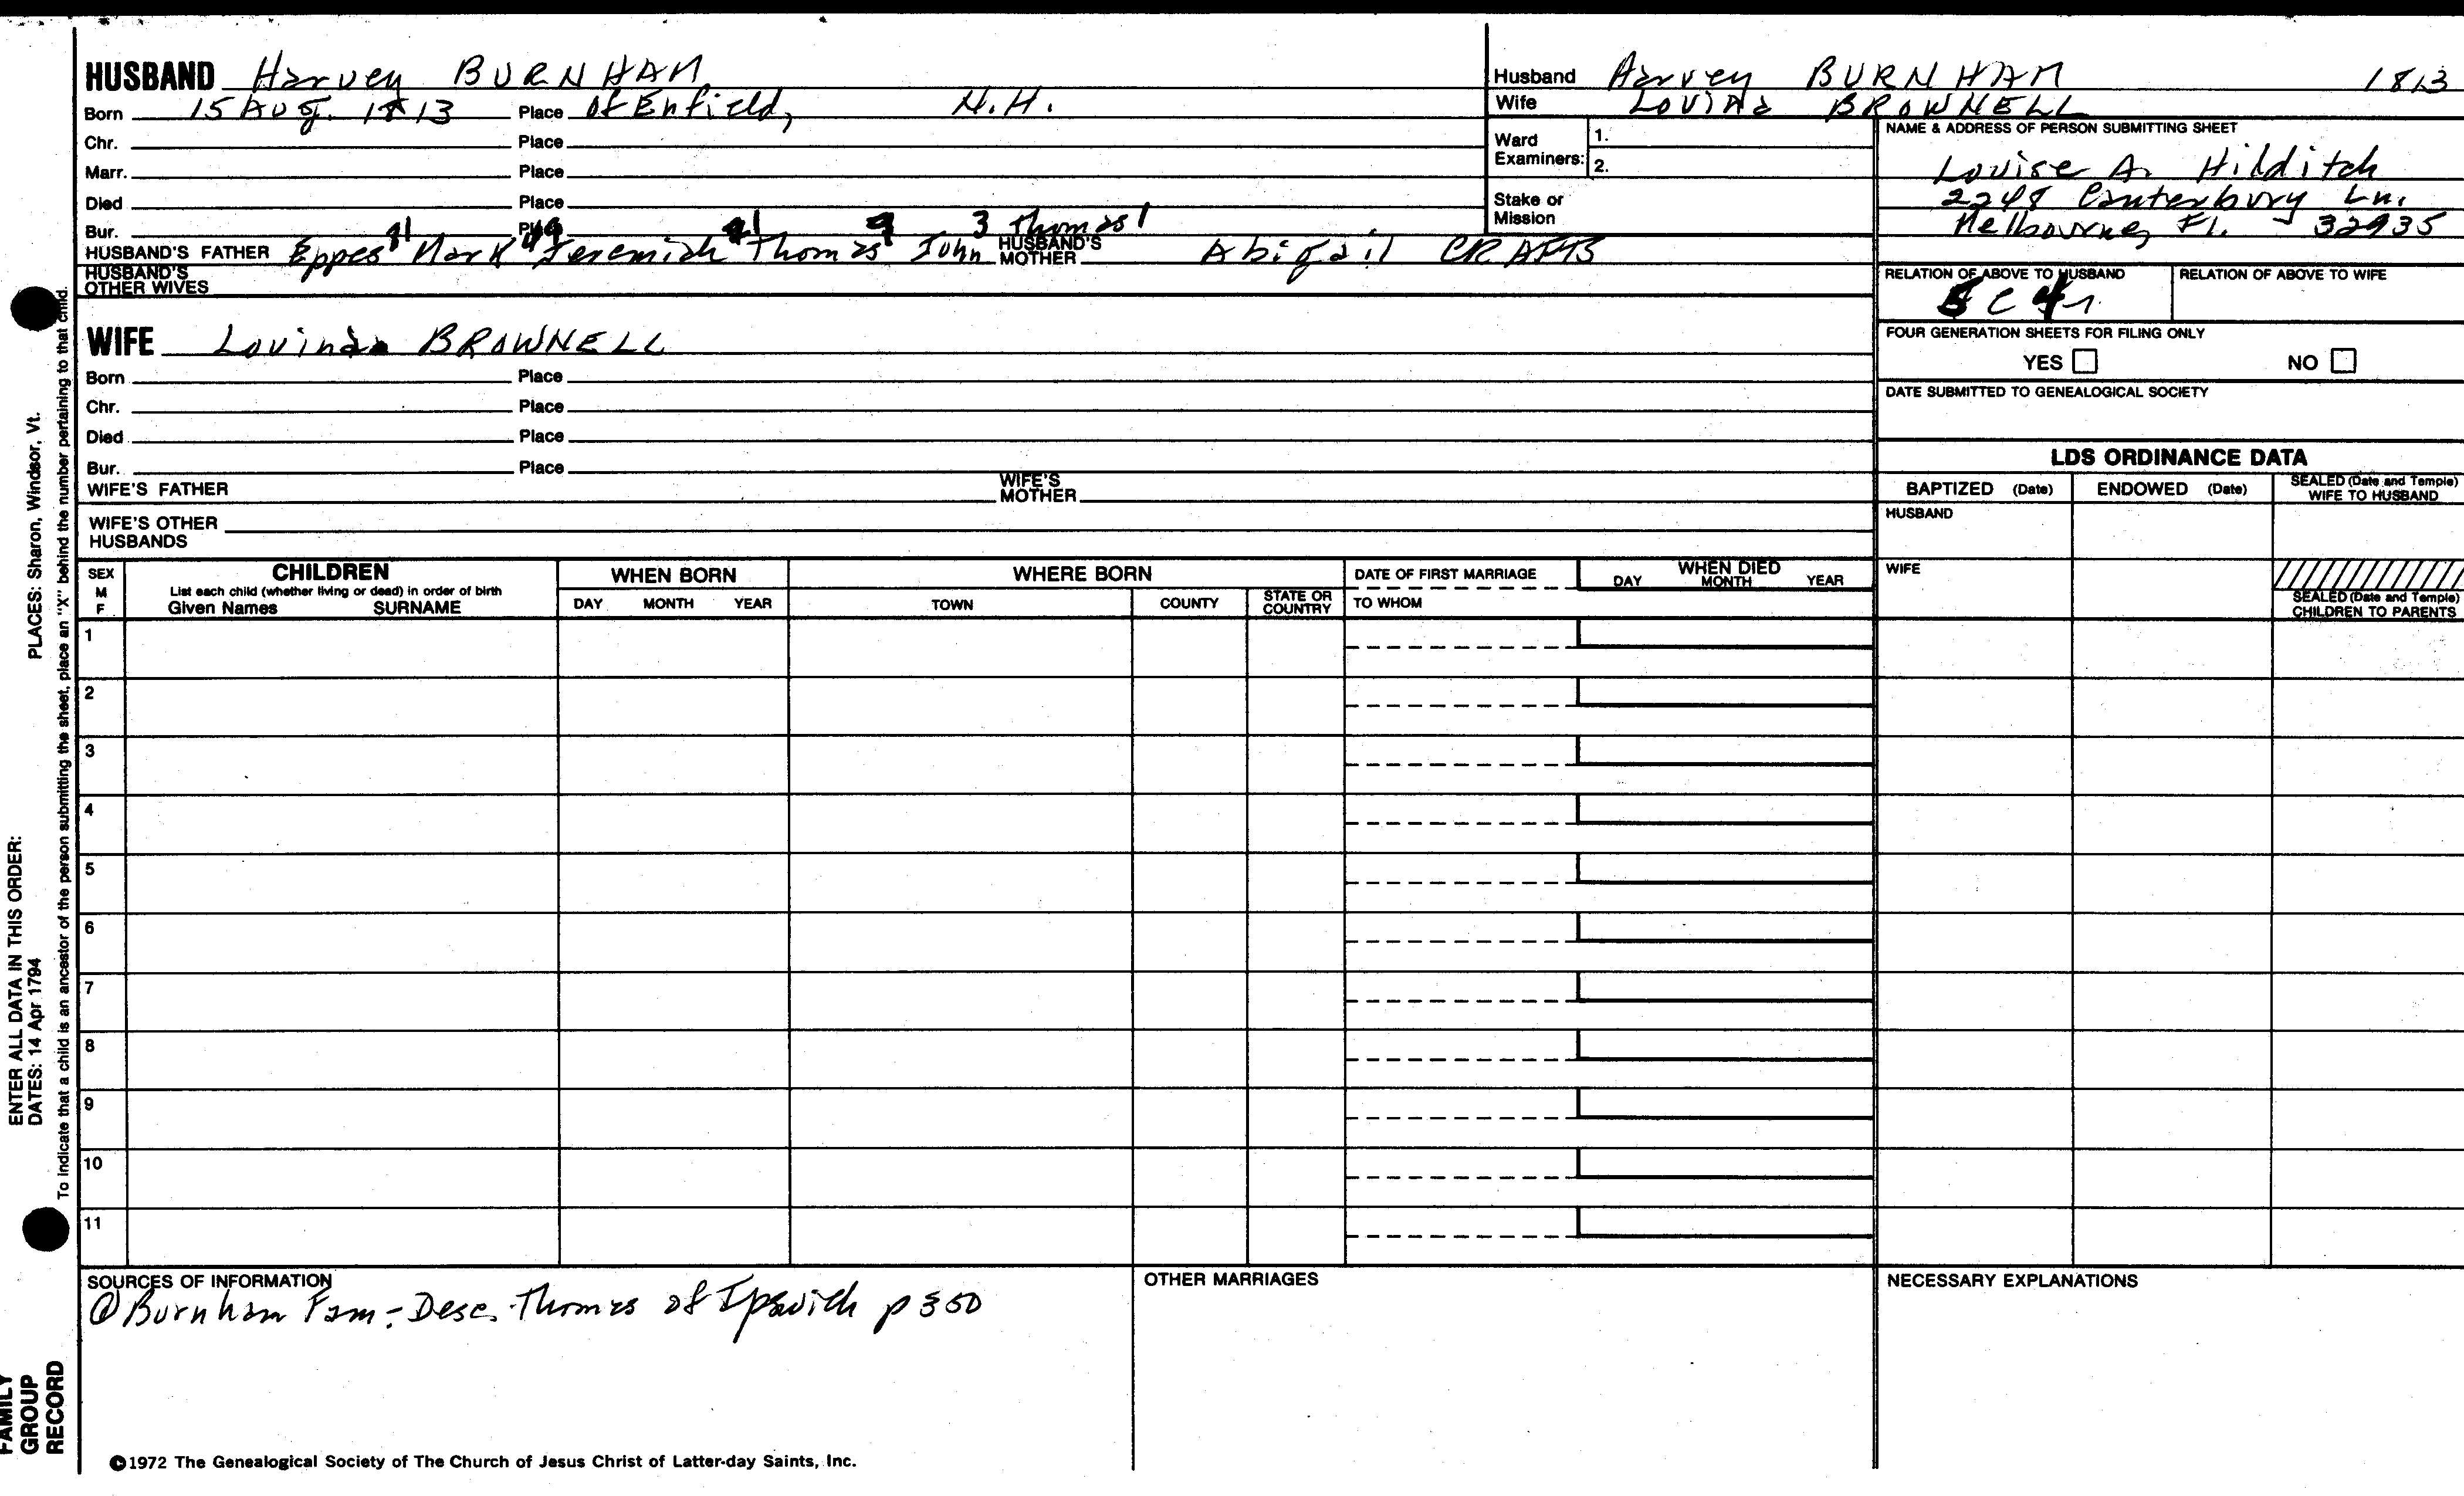 HUSBAND Harvey BURNHAM
Born 15 Aug. 1813 Place of Enfield, N.H.
Chr. Place
Marr. Place
Died Place
Bur. Place
HUSBAND'S FATHER Eppes Mark Jeremiah Thomas John 3 Thomas 1 HUSBAND'S MOTHER Abigail CRAFTS
HUSBAND'S OTHER WIVES
WIFE Lovinda BROWNELL
Born Place
Chr. Place
Died Place
Bur. Place
WIFE'S FATHER WIFE'S MOTHER
WIFE'S OTHER HUSBANDS
Husband Harvey BURNHAM 1813
Wife Lovina BROWNELL
Ward Examiners: 1.
2.
Stake or Mission
NAME & ADDRESS OF PERSON SUBMITTING SHEET
Louise A. Hilditch
2248 Canterbury Ln.
Melbourne, Fl. 32935
RELATION OF ABOVE TO HUSBAND RELATION OF ABOVE TO WIFE
FOUR GENERATION SHEETS FOR FILING ONLY
YES NO
DATE SUBMITTED TO GENEALOGICAL SOCIETY
LDS ORDINANCE DATA
BAPTIZED (Date) ENDOWED (Date) SEALED (Date and Temple) WIFE TO HUSBAND
HUSBAND
WIFE
SEALED (Date and Temple) CHILDREN TO PARENTS
SEX M F
CHILDREN
List each child (whether living or dead) in order of birth
Given Names SURNAME
WHEN BORN
DAY MONTH YEAR
WHERE BORN
TOWN COUNTY STATE OR COUNTRY
DATE OF FIRST MARRIAGE
TO WHOM
WHEN DIED
DAY MONTH YEAR
1
2
3
4
5
6
7
8
9
10
11
SOURCES OF INFORMATION
@ Burnham Fam - Desc. Thomas of Ipswich p 350
OTHER MARRIAGES
NECESSARY EXPLANATIONS
©1972 The Genealogical Society of The Church of Jesus Christ of Latter-day Saints, Inc.
ENTER ALL DATA IN THIS ORDER:
DATES: 14 Apr 1794 PLACES: Sharon, Windsor, Vt.
To indicate that a child is an ancestor of the person submitting the sheet, place an "X" behind the number pertaining to that child.
FAMILY
GROUP
RECORD